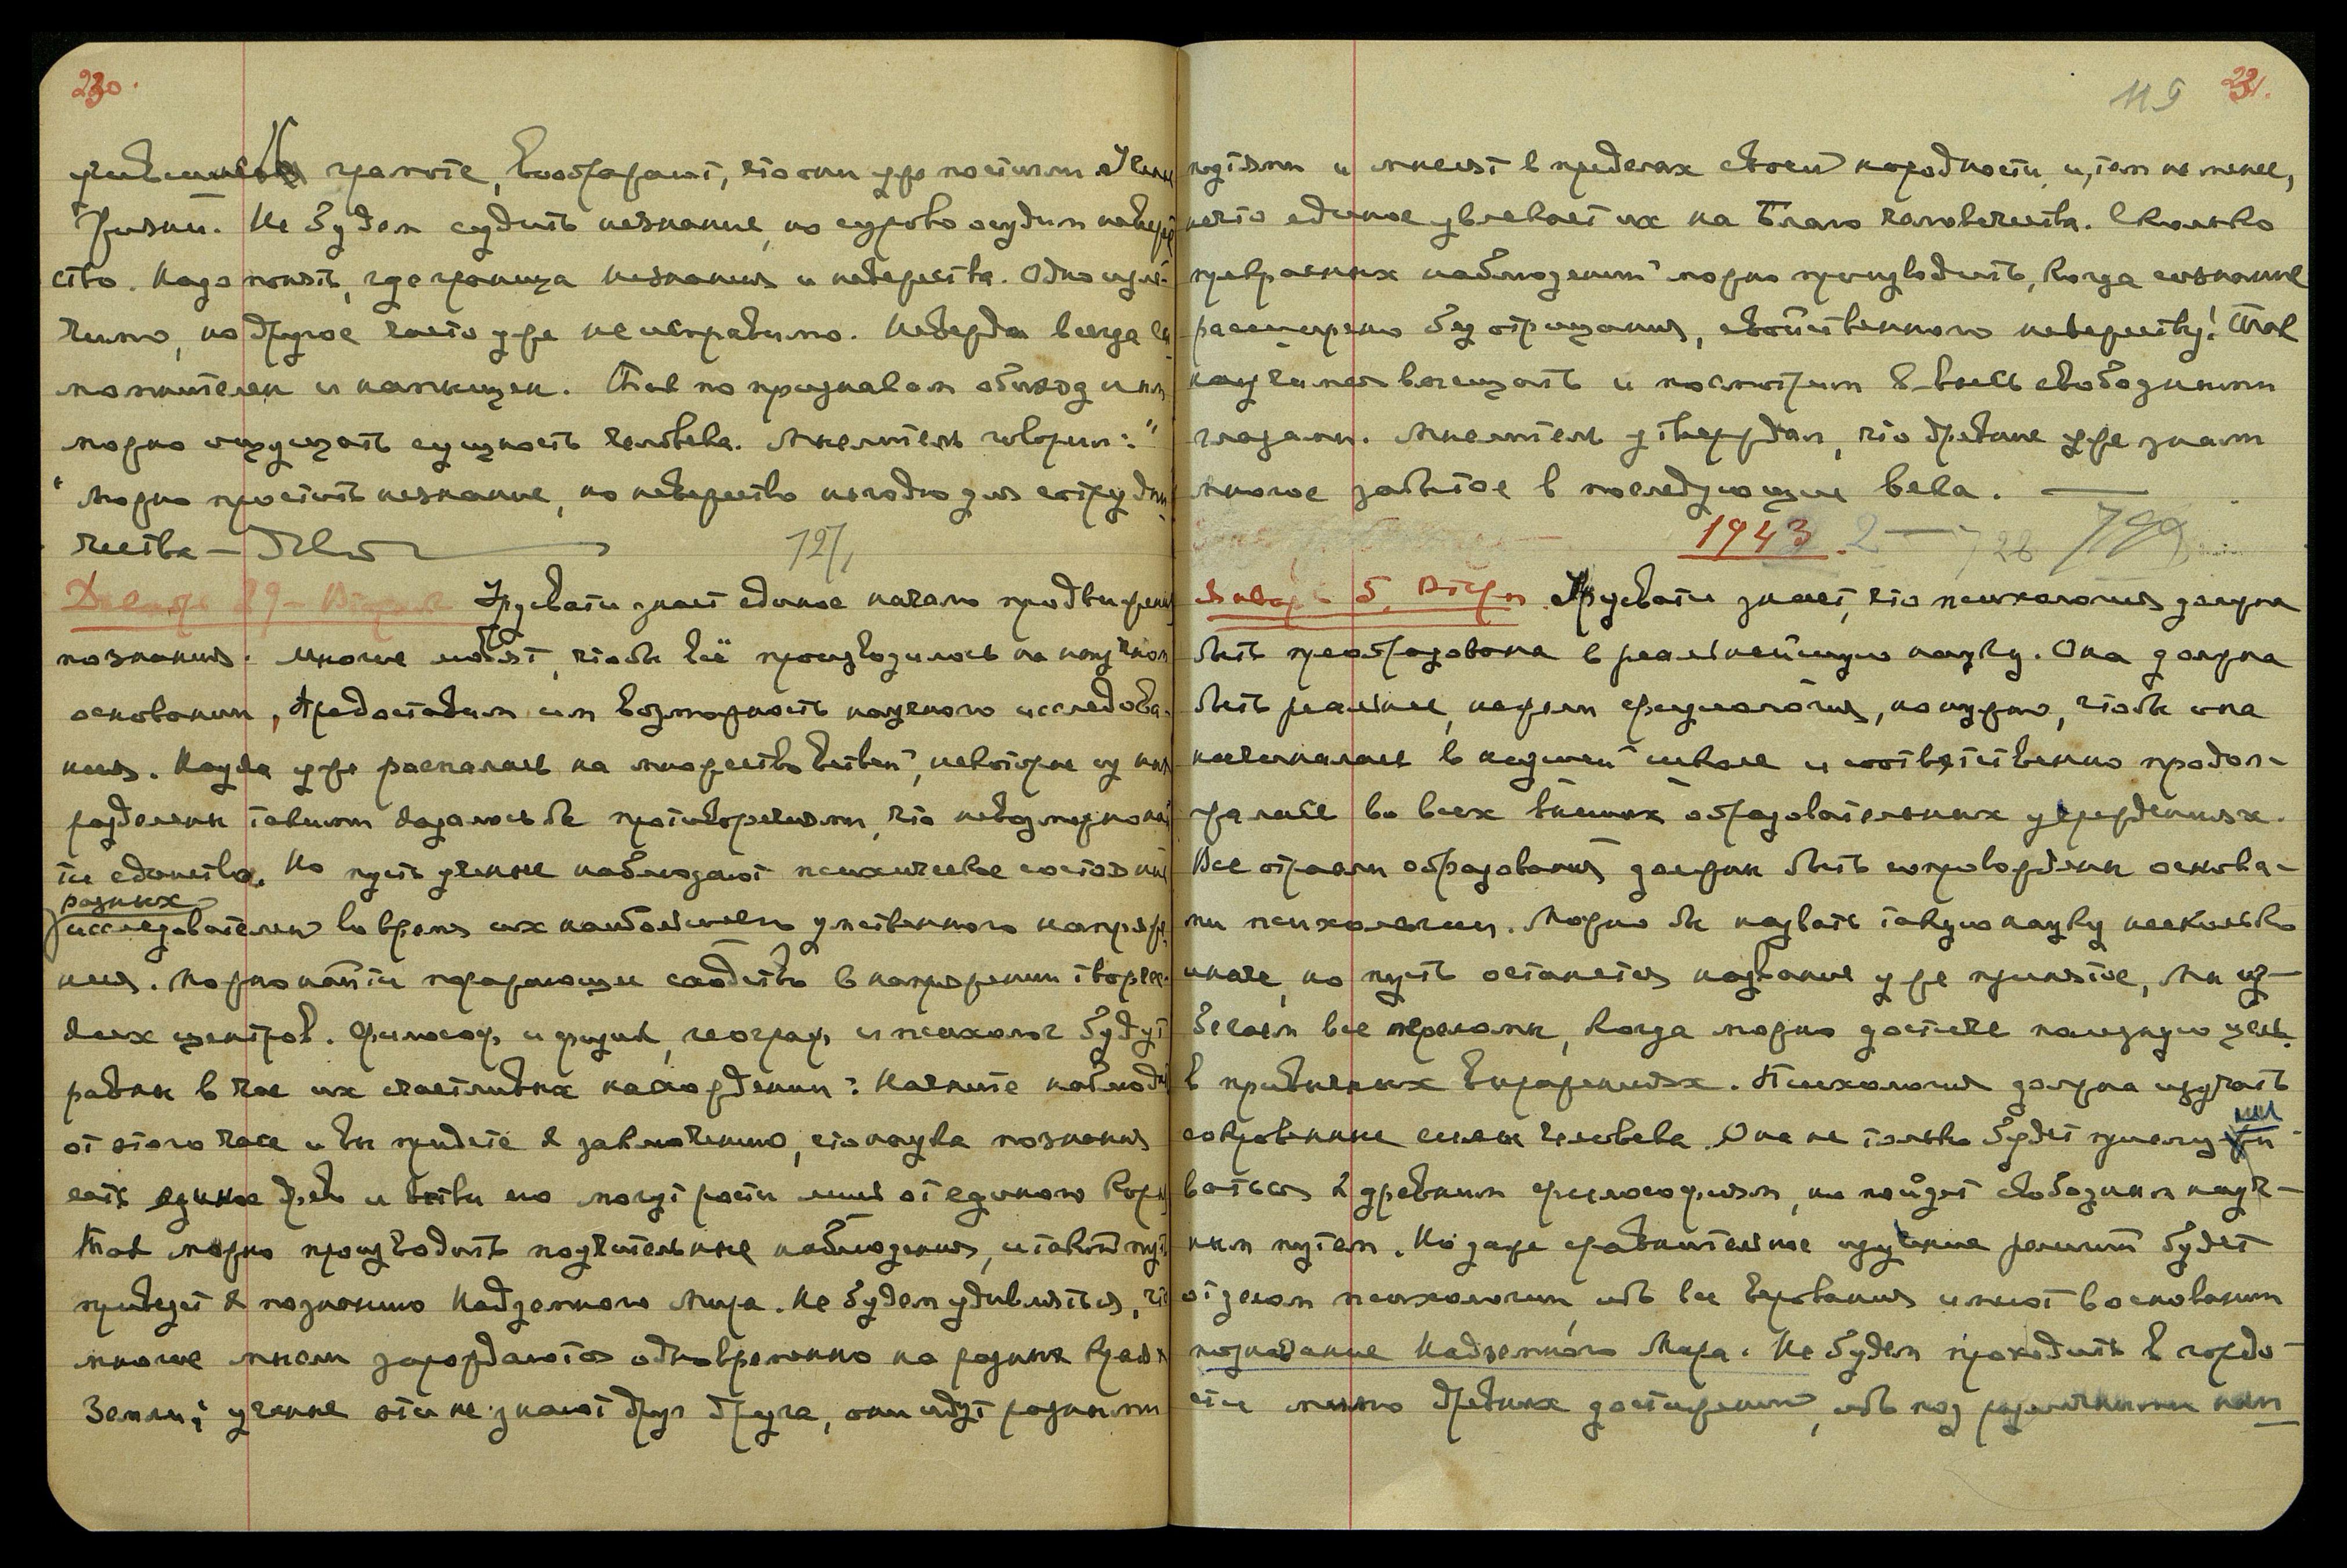 230.
грамоте, воображают, что они уже постигли
Жизни. Не будем судить незнание, но сурово осудим невеже
ство. Надо понять, где граница незнания и невежества. Одно изле-
чимо, но другое часто уже неисправимо. Невежда всегда са
момнителен и напыщен. Так по признакам обихода
можно ощущать сущность человека. Мыслитель говорил: "
" Можно простить незнание, но невежество негодно для сотрудни
чества —
Декабрь 29 – Вторник Урусвати знает единое начало продвижения
познания. Многие хотят, чтобы всё производилось на научном
основании, Предоставим им возможность научного исследова-
ния. Наука уже распалась на множество ветвей, некоторые из них
разделены такими казалось бы противоречиями, что невозможно най
ти единства. Но пусть ученые наблюдают психическое состояние
разных
исследователей во время их наибольшего умственного напряже
ния. Можно найти поражающее сходство в напряжении творчес-
ких центров. Философ и физик, географ и психолог будут
равны в час их счастливых нахождений. Начните наблюд
от этого часа и вы придете к заключению, что наука познания
есть единое древо и ветви его могут расти лишь от единого корня
Так можно производить поучительные наблюдения, и такой путь
приведет к познанию Надземного Мира. Не будем удивляться, что
многие мысли зарождаются одновременно на разных краях
Земли; ученые эти не знают друг друга, они идут разными
119 231.
путями и мыслят в пределах своей народности, и, тем не менее,
нечто единое увлекает их на Благо человечества. Сколько
прекрасных наблюдений можно производить, когда сознание
расширено без отрицания, свойственного невежеству! Так
научимся восхищать и посмотрим ввысь свободными
глазами. Мыслитель утверждал, что древние уже знали
многое забытое в последующие века. —
1943. 2 — 728
Январь 5. Вторн Урусвати знает, что психология должна
быть преобразована в реальнейшую науку. Она должна
быть реальнее, нежели физиология, но нужно, чтобы она
начиналась в низшей школе и соответственно продол-
жалась во всех высших образовательных учреждениях.
Все отрасли образования должны быть сопровождены основа-
ми психологии. Можно бы назвать такую науку несколько
иначе, но пусть останется название уже принятое, Мы из-
бегаем все переломы, когда можно достичь полезную цель
в привычных выражениях. Психология должна изучать
сокровенные силы человека. Она не только будет
ваться к древним философиям, но пойдет свободным науч-
ным путем. Но даже сравнительное изучение религий будет
отделом психологии, ибо все верования имеют в основании
познавание Надземного Мира. Не будем проходить в гордо-
сти мимо древних достижений, ибо под различными наи